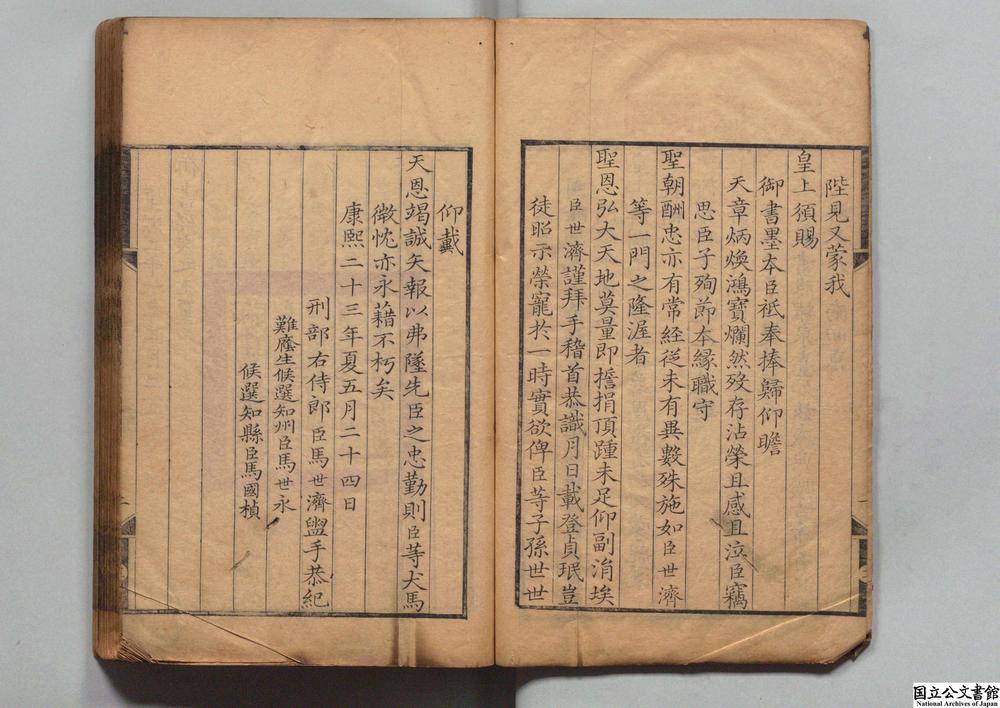 陛見又蒙我
皇上頒賜
御書墨本臣祗奉捧歸仰瞻
天章炳煥鴻寶爛然歿存沾榮且感且泣臣竊
思臣子殉節本縁職守
聖朝酬忠亦有常経從未有異數殊施如臣世濟
等一門之隆渥者
聖恩弘大天地莫量即捐頂踵未足仰副涓埃
臣世濟謹拜手稽首恭識月日載登貞珉豈
徒昭示榮寵扵一時實欲俾臣等子孫世世
仰戴
天恩竭誠矢報以弗墜先臣之忠勤則臣等犬馬
微忱亦永藉不朽矣
康熙二十三年夏五月二十四日
刑部右侍郎臣馬世濟盥手恭紀
難廕生候選知州臣馬世永
候選知縣臣馬國楨
国立公文書館
National Archives of Japan